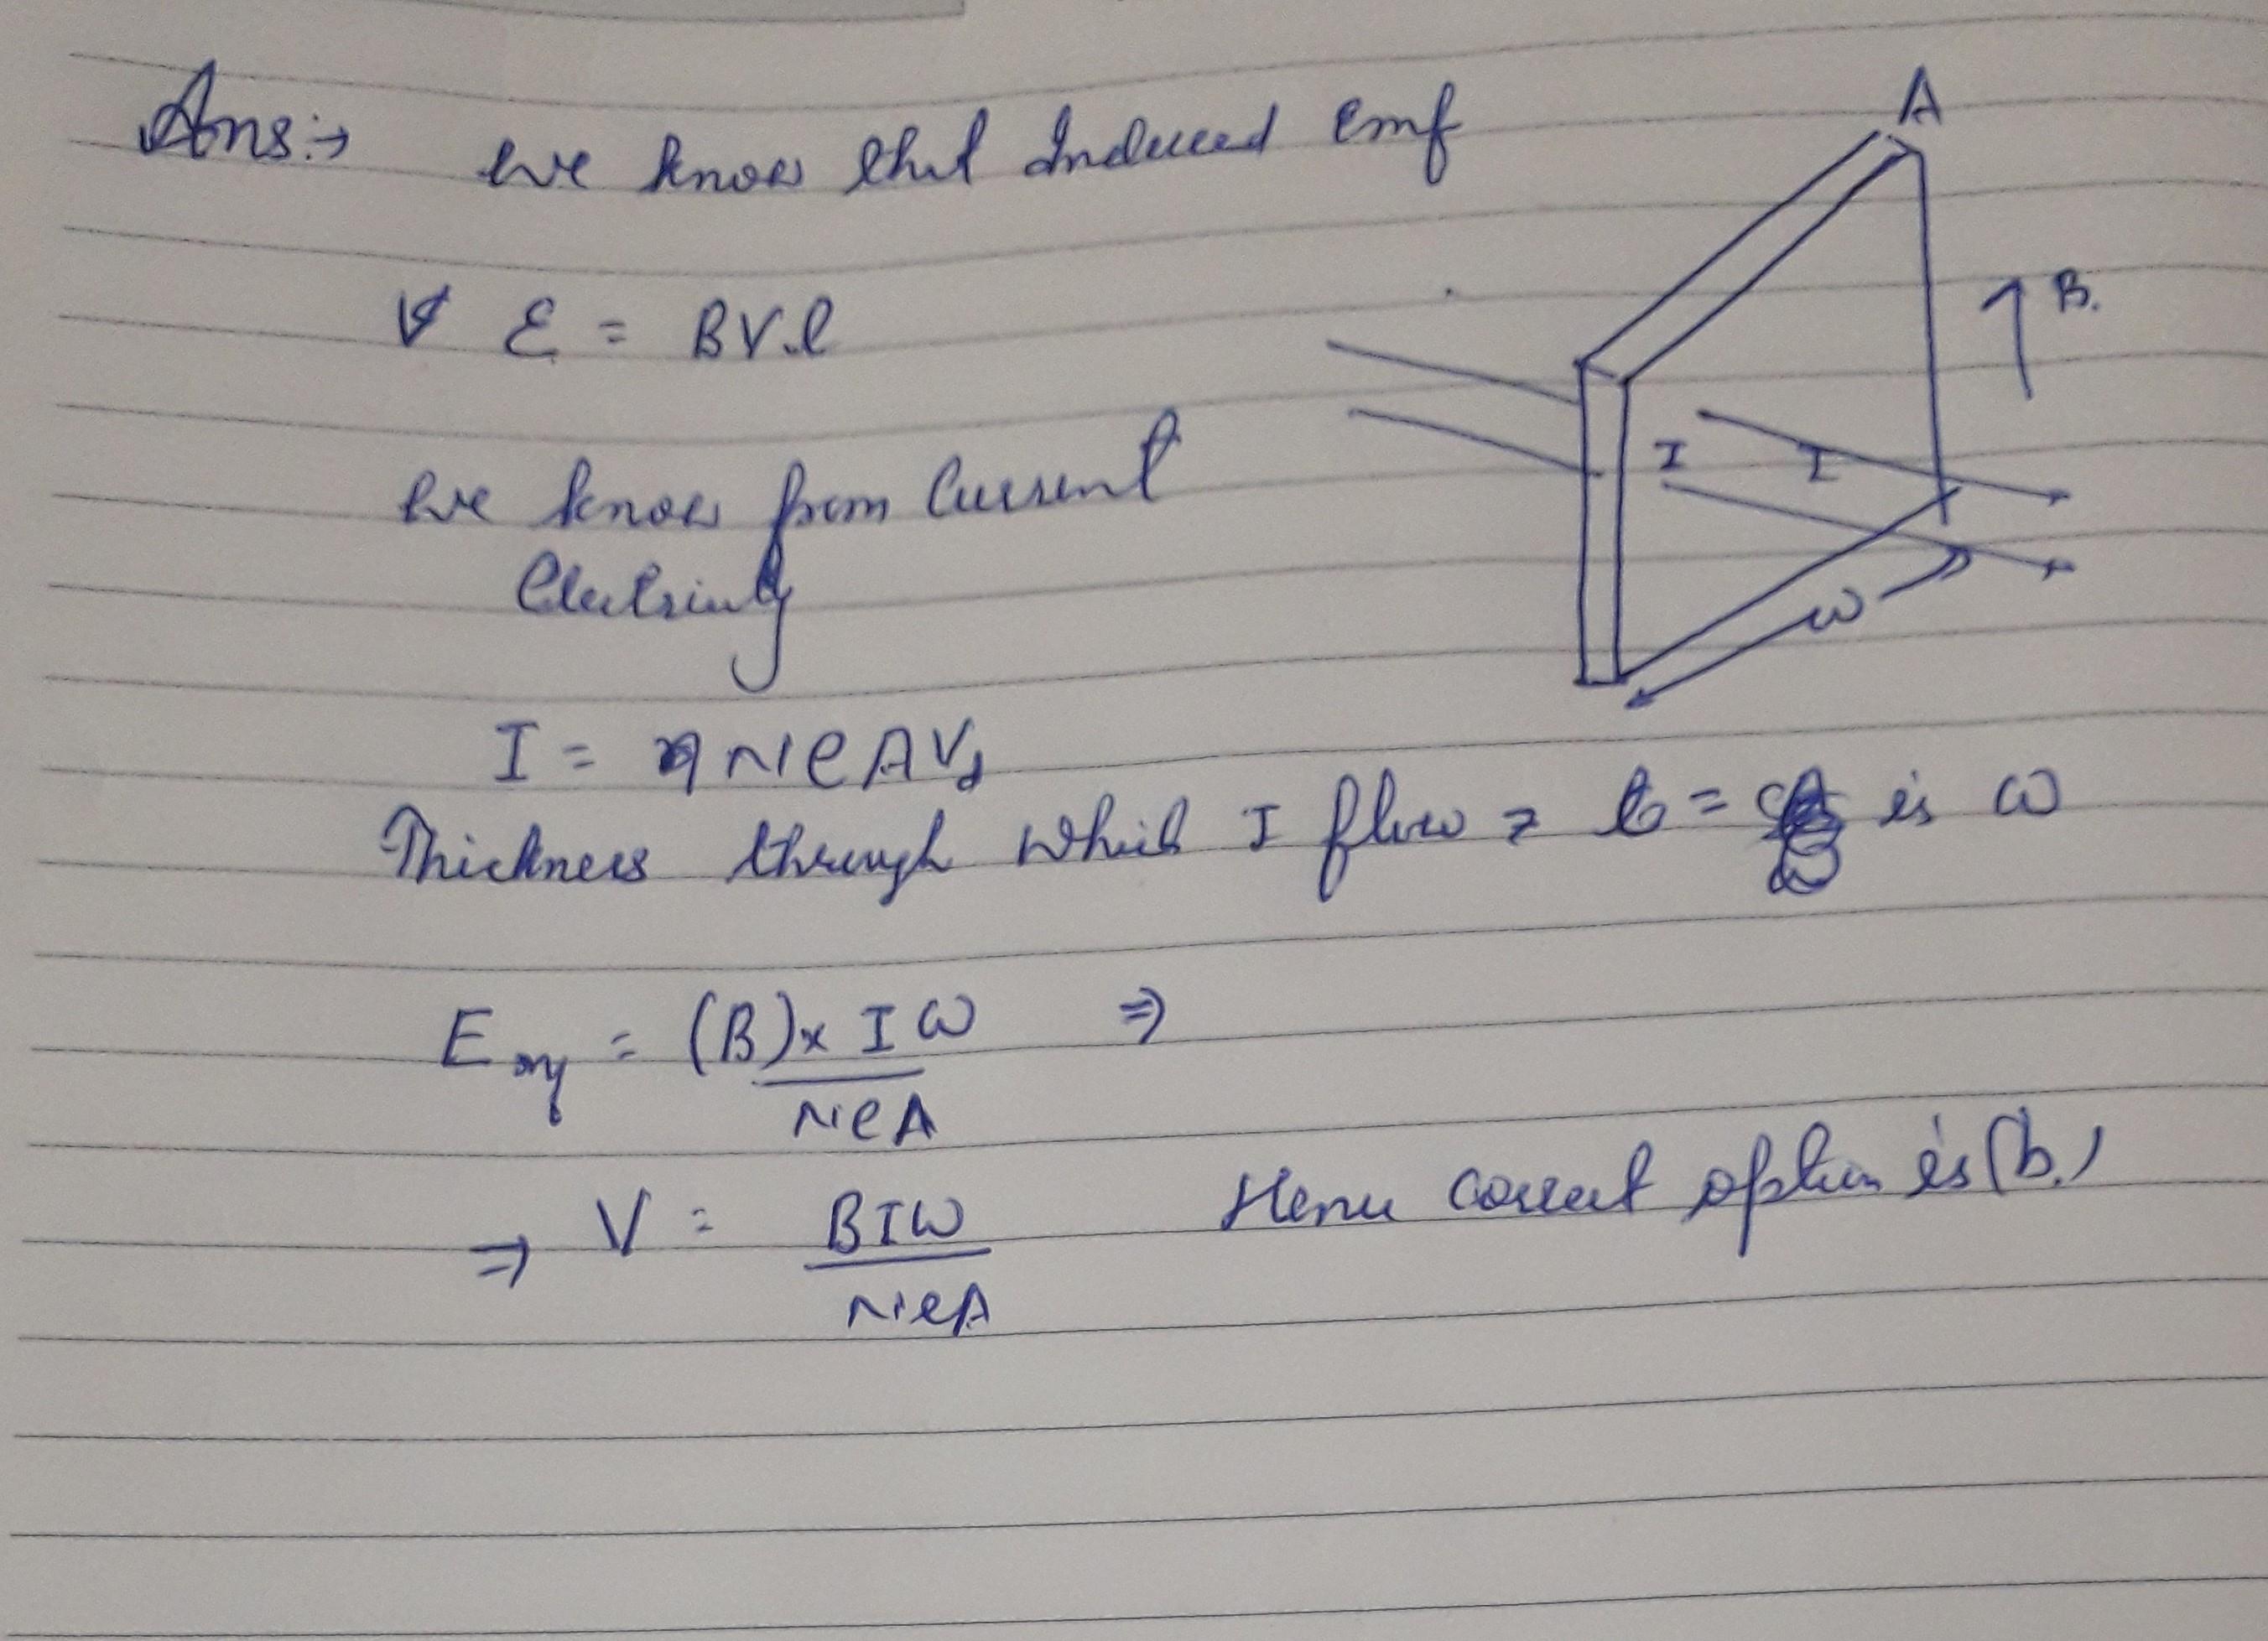 Ans:→ We know that Induced emf
A
ε = BV.l
B.
We know from Current
Electricity
I I
ω
I = NeAVd
Thickness through which I flow = t = is ω
Emf = (B)x Iω ⇒
NeA
⇒ V = BIW
NeA
Hence correct option is (b.)